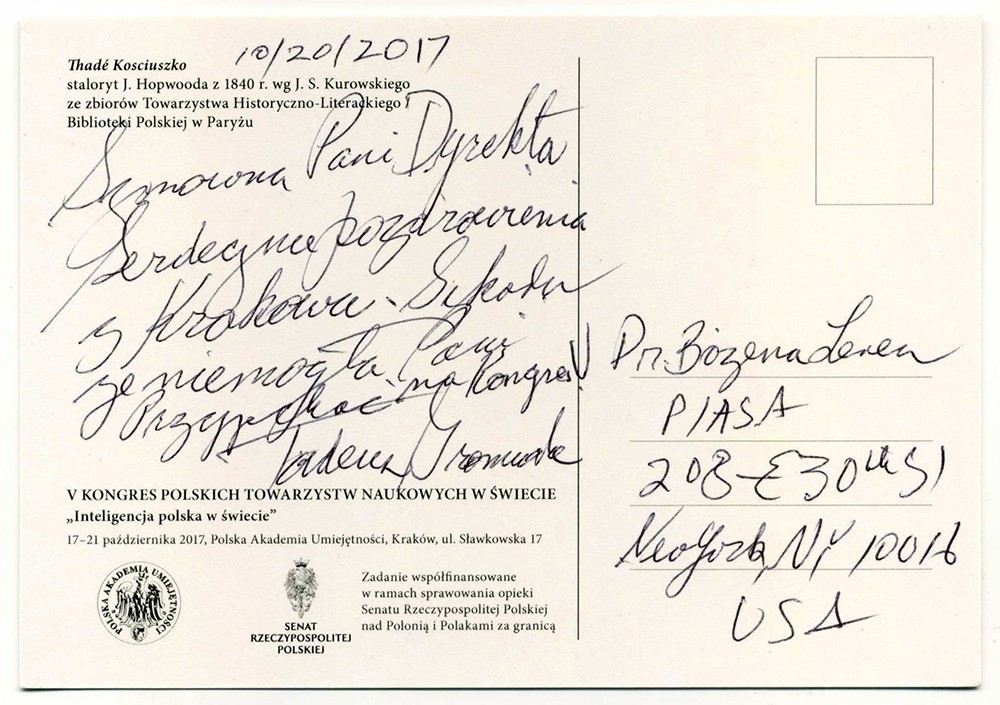 10/20/2017
Thadé Kosciuszko
staloryt J. Hopwooda z 1840 r. wg J. S. Kurowskiego
ze zbiorów Towarzystwa Historyczno-Literackiego /
Biblioteki Polskiej w Paryżu
Szanowna Pani Dyrekto
Serdeczne pozdrowienia
z Krakowa. Szkoda
że niemogła Pani
Przyjechać na Kongres!
Tadeusz Gromada
V KONGRES POLSKICH TOWARZYSTW NAUKOWYCH W ŚWIECIE
„Inteligencja polska w świecie”
17–21 października 2017, Polska Akademia Umiejętności, Kraków, ul. Sławkowska 17
POLSKA AKADEMIA UMIEJĘTNOŚCI
SENAT
RZECZYPOSPOLITEJ
POLSKIEJ
Zadanie współfinansowane
w ramach sprawowania opieki
Senatu Rzeczypospolitej Polskiej
nad Polonią i Polakami za granicą
Dr. Bozena Leven
PIASA
208-E30th St
New York, NY 10016
USA